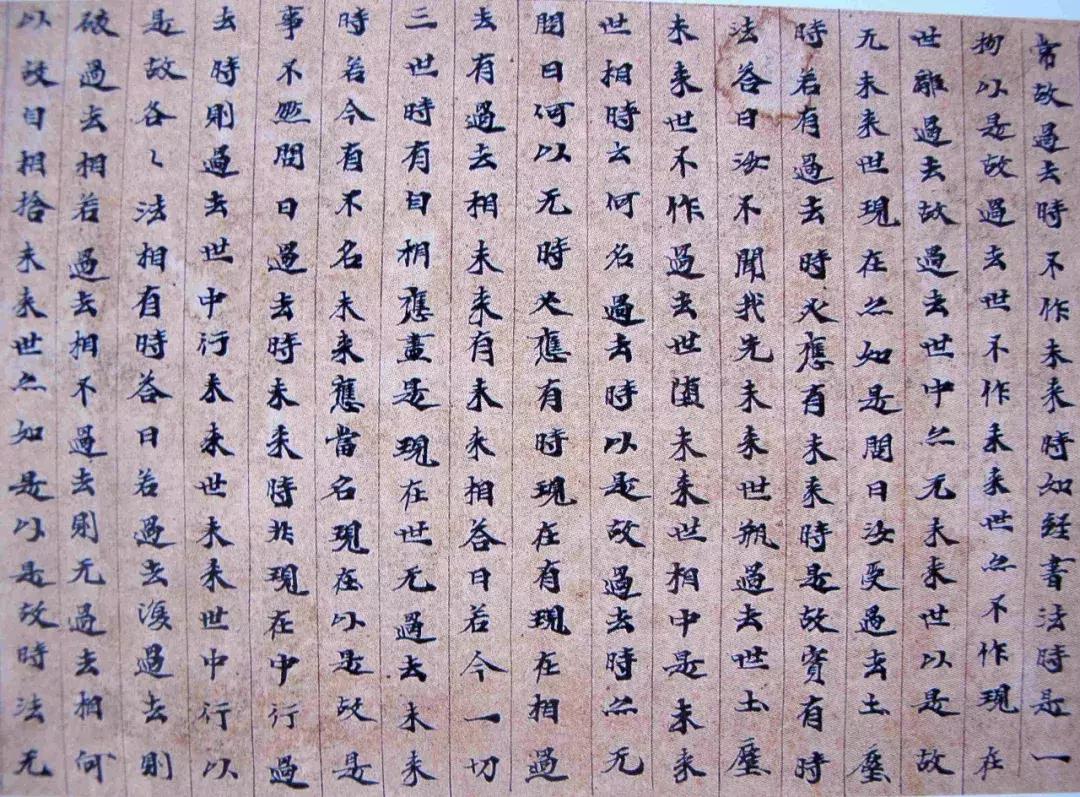 常故過去時不作未来時如経書法時是一
物以是故過去世不作未来世亦不作現在
世離過去故過去世中亦无未来世以是故
无未来世現在亦如是問曰汝受過去土塵
時若有過去時必應有未来時是故實有時
法答曰汝不聞我先未来世瓶過去世土塵
未来世不作過去世墮未来世相中是未来
世相時云何名過去時以是故過去時亦无
問曰何以无時必應有時現在有現在相過
去有過去相未来有未来相答曰若今一切
三世時有自相應盡是現在世无過去未来
時若今有不名未来應當名現在以是故是
事不然問曰過去時未来時非現在中行過
去時則過去世中行未来世未来世中行以
是故各〻法相有時答曰若過去復過去則
破過去相若過去相不過去則无過去相何
以故自相捨未来世亦如是以是故時法无